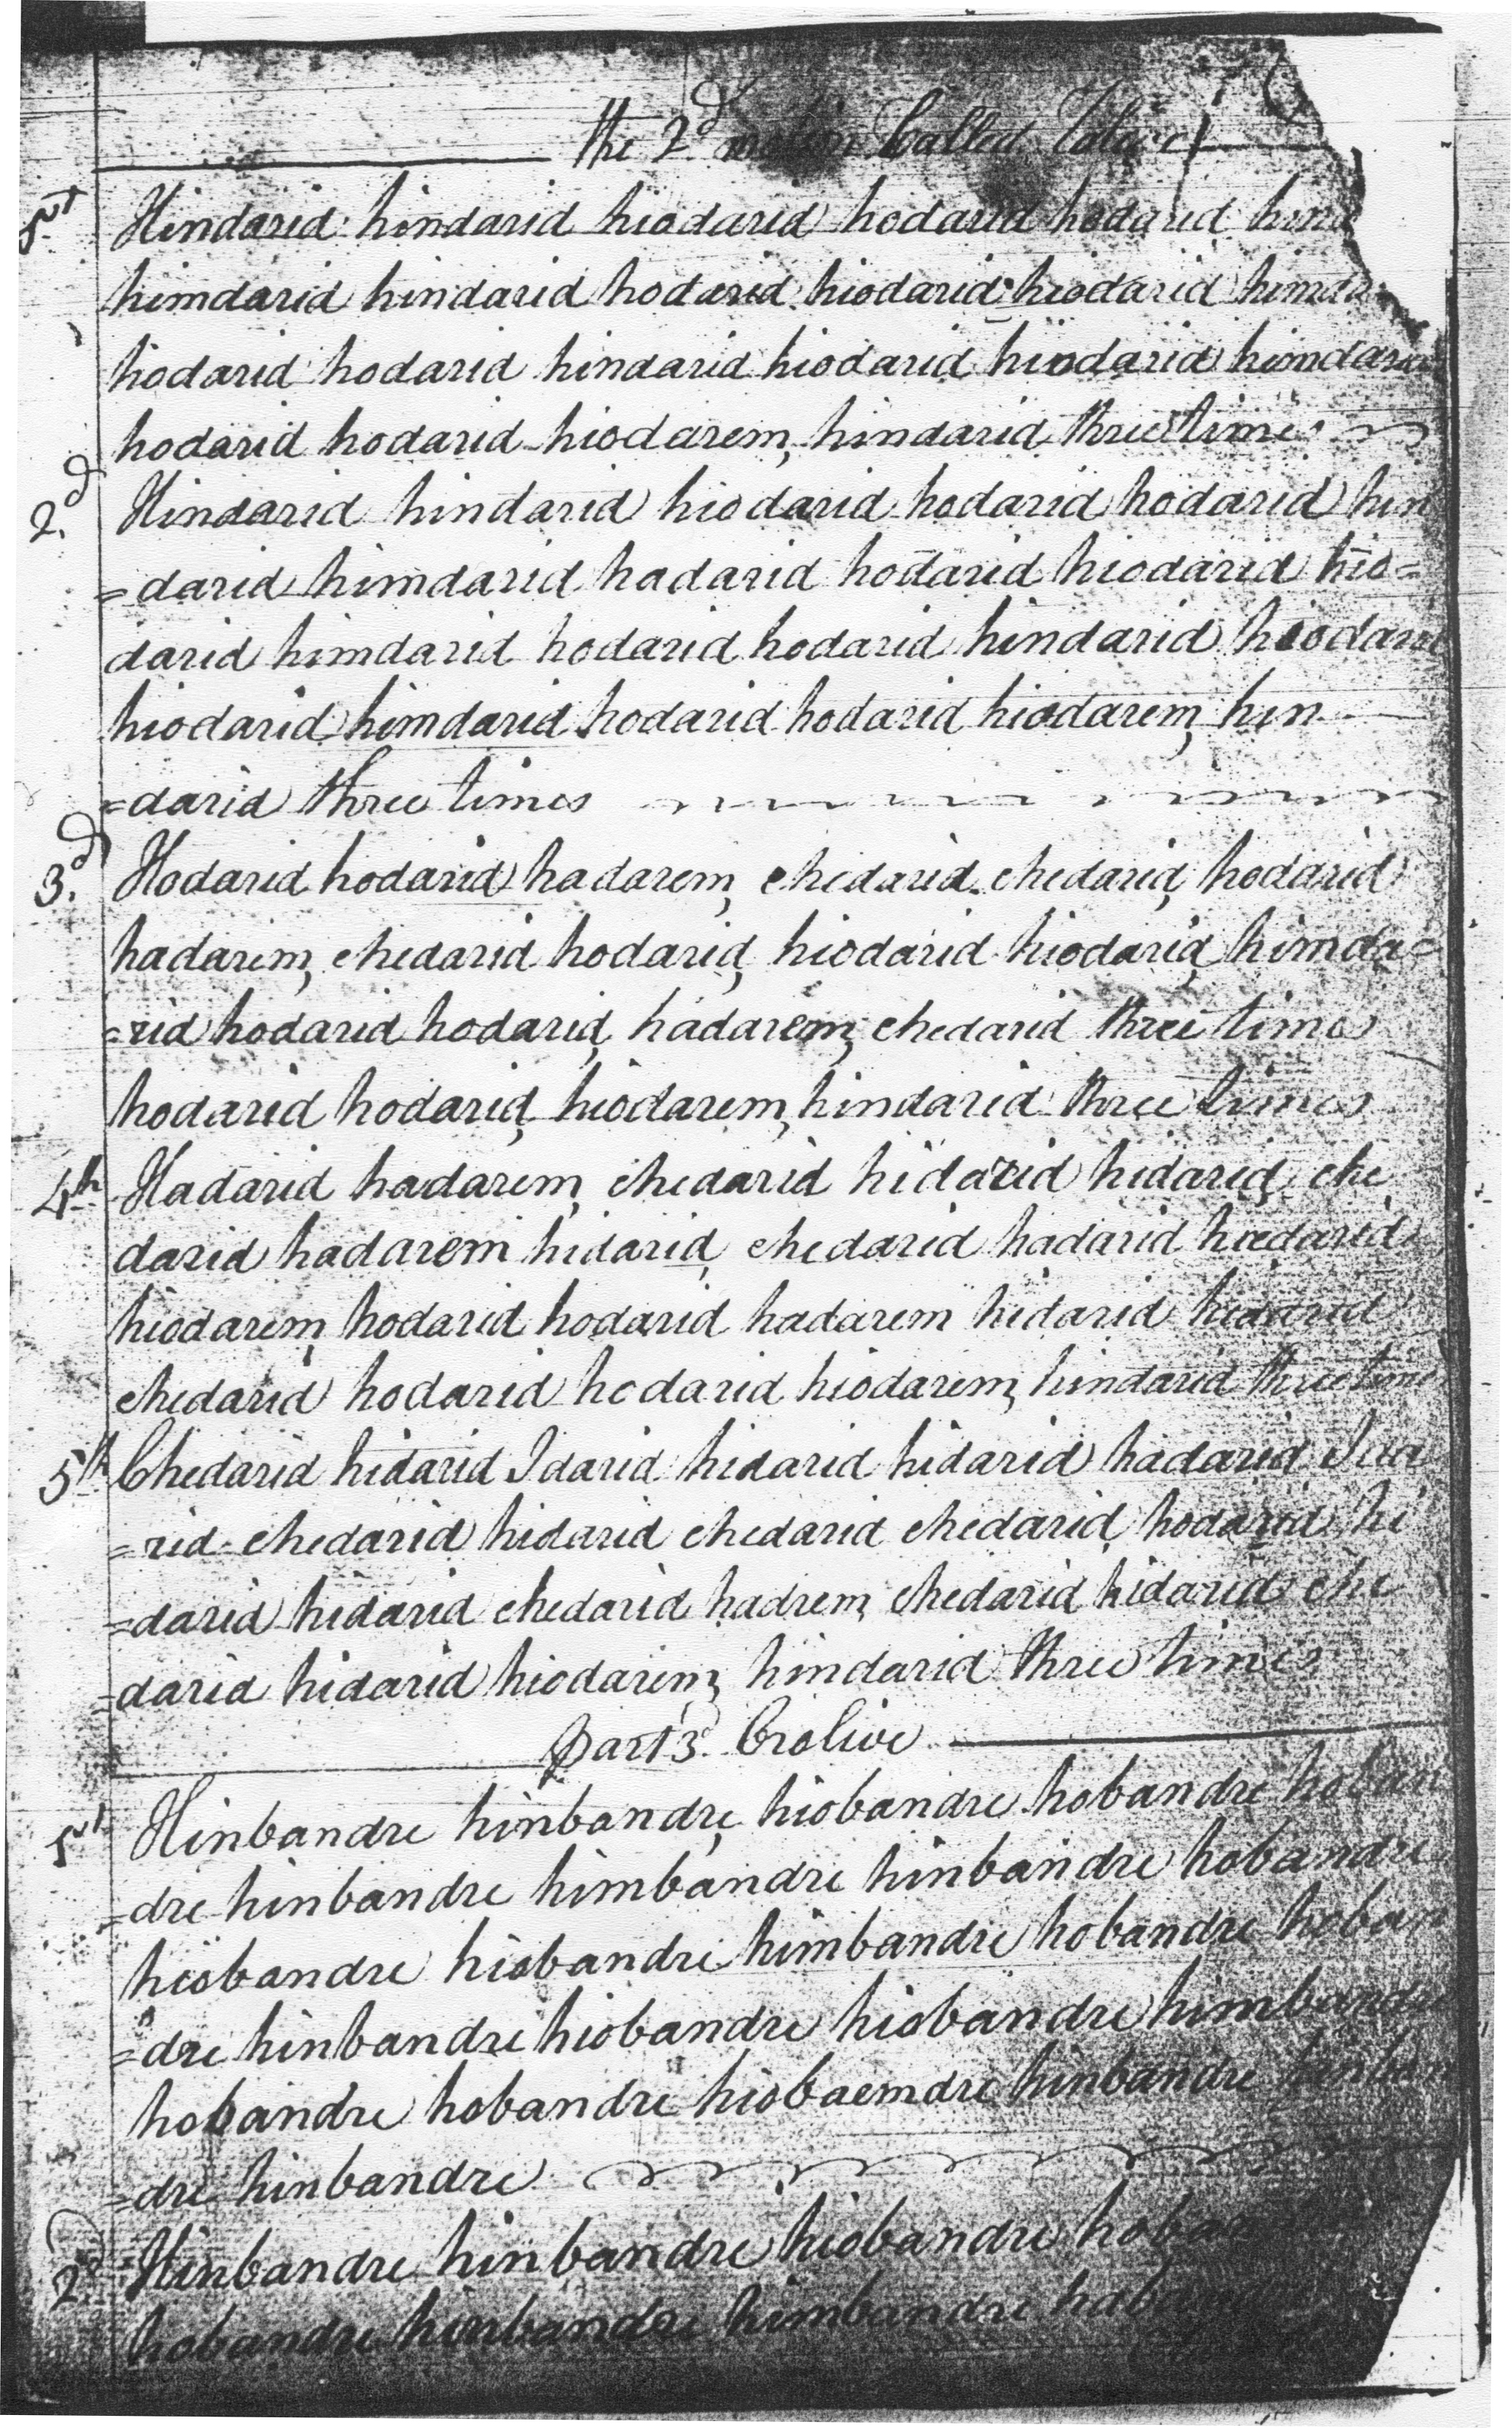 The 2d motion Called
1st Hindarid hindarid hiodarid hodarid hodarid hind
himdarid hindarid hodarid hiodarid hiodarid himda
hodarid hodarid hindarid hiodarid hiodarid himdarid
hodarid hodarid hiodarem, hindarid three times
2d. Hindarid hindarid hiodarid hodarid hodarid hin
=darid himdarid hadarid hodarid hiodarid hio=
darid himdarid hodarid hodarid hindarid hiodarid
hiodarid himdarid hodarid hodarid hiodarem, hin
=darid three times
3d. Hodarid hodarid hadarem, chedarid chedarid, hodarid
hadarem, chedarid hodarid, hiodarid hiodarid, himda=
=rid hodarid hodarid, hadarem, chedarid three times
hodarid hodarid, hiodarem, hindarid three times
4th Hadarid hadarem, chedarid hidarid hidarid, che
darid hadarem hidarid, chedarid hadarid hiodarid
hiodarem, hodarid hodarid hadarem hidarid hidarid
chedarid hodarid hodarid hiodarem, hindarid three times
5th Chedarid hidarid Idarid hidarid hidarid hadarid Ida
=rid chedarid hidarid chedarid chedarid, hodarid hi
=darid hidarid chedarid hadrem, chedarid hidarid che
=darid hidarid hiodarem, hindarid three times
Part 3d. Crolive
1st Hinbandre hinbandre, hiobandre hobandre hoban
=dre hinbandre himbandre hinbandre hobandre
hiobandre hiobandre himbandre hobandre hoban
=dre hinbandre hiobandre hiobandre himbandre
hobandre hobandre hiobaemdre hinbandre hinban
=dre hinbandre
2d. Hinbandre hinbandre hiobandre
hobandre hinbandre himbandre